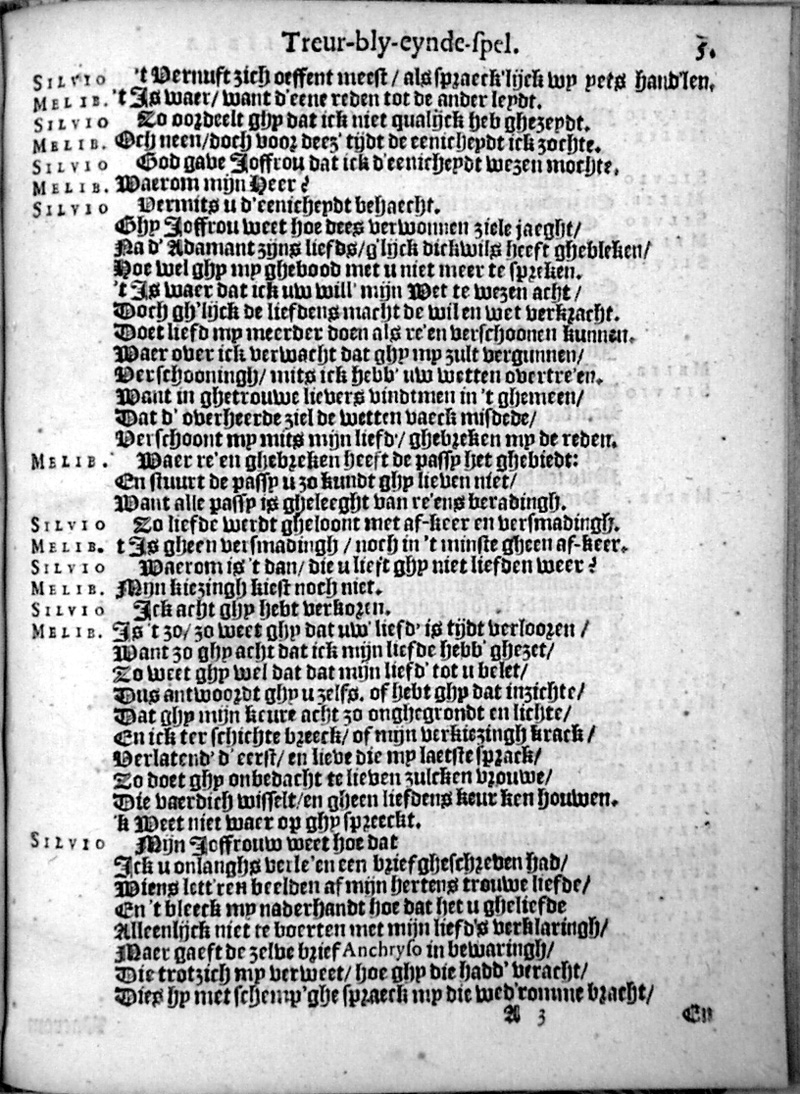 Treur-bly-eynde-spel. 5.
SILVIO 't Vernuft zich oeffent meest/ als spraeck'lijck wy yets hand'len,
MELIB. 't Is waer/ want d'eene reden tot de ander leydt.
SILVIO Zo oordeelt ghy dat ick niet qualijck heb ghezeydt.
MELIB. Och neen/ doch voor deez' tijdt de eenicheydt ick zochte.
SILVIO God gave Joffrou dat ick d'eenicheydt wezen mochte,
MELIB. Waerom mijn Heer?
SILVIO Vermits u d'eenicheydt behaecht.
Ghy Joffrou weet hoe dees verwonnen ziele jaeght/
Na d' Adamant zijns liefds/ g'lijck dickwils heeft ghebleken/
Hoe wel ghy my ghebood met u niet meer te spreken.
't Is waer dat ick uw will' mijn Wet te wezen acht/
Doch gh'lijck de liefdens macht de wil en wet verkracht.
Doet liefd my meerder doen als re'en verschoonen kunnen.
Waer over ick verwacht dat ghy my zult vergunnen/
Verschooningh/ mits ick hebb' uw wetten overtre'en.
Want in ghetrouwe lievers vindtmen in 't ghemeen/
Dat d' overheerde ziel de wetten vaeck misdede/
Verschoont my mits mijn liefd'/ ghebreken my de reden.
MELIB. Waer re'en ghebreken heeft de passy het ghebiedt:
En stuurt de passy u zo kundt ghy lieven niet/
Want alle passy is gheleeght van re'ens beradingh.
SILVIO Zo liefde werdt gheloont met af-keer en versmadingh.
MELIB. t Is gheen versmadingh/ noch in 't minste gheen af-keer.
SILVIO Waerom is 't dan/ die u lieft ghy niet liefden weer?
MELIB. Mijn kiezingh kiest noch niet.
SILVIO Ick acht ghy hebt verkozen.
MELIB. Is 't zo/ zo weet ghy dat uw' liefd' is tijdt verloozen/
Want zo ghy acht dat ick mijn liefde hebb' ghezet/
Zo weet ghy wel dat dat mijn liefd' tot u belet/
Dus antwoordt ghy u zelfs. of hebt ghy dat inzichte/
Dat ghy mijn keure acht zo onghegrondt en lichte/
En ick ter schichte breeck/ of mijn verkiezingh krack/
Verlatend' d' eerst/ en lieve die my laetste sprack/
Zo doet ghy onbedacht te lieven zulcken vrouwe/
Die vaerdich wisselt/ en gheen liefdens keur ken houwen.
'k Weet niet waer op ghy spreeckt.
SILVIO Mijn Joffrouw weet hoe dat
Ick u onlanghs verle'en een brief gheschreven had/
Wiens lett'ren beelden af mijn hertens trouwe liefde/
En 't bleeck my naderhandt hoe dat het u gheliefde
Alleenlijck niet te boerten met mijn liefd's verklaringh/
Maer gaeft de zelve brief Anchryso in bewaringh/
Die trotzich my verweet/ hoe ghy die hadd' veracht/
Dies hy met schemp'ghe spraeck my die wed'romme bracht/
A 3 En